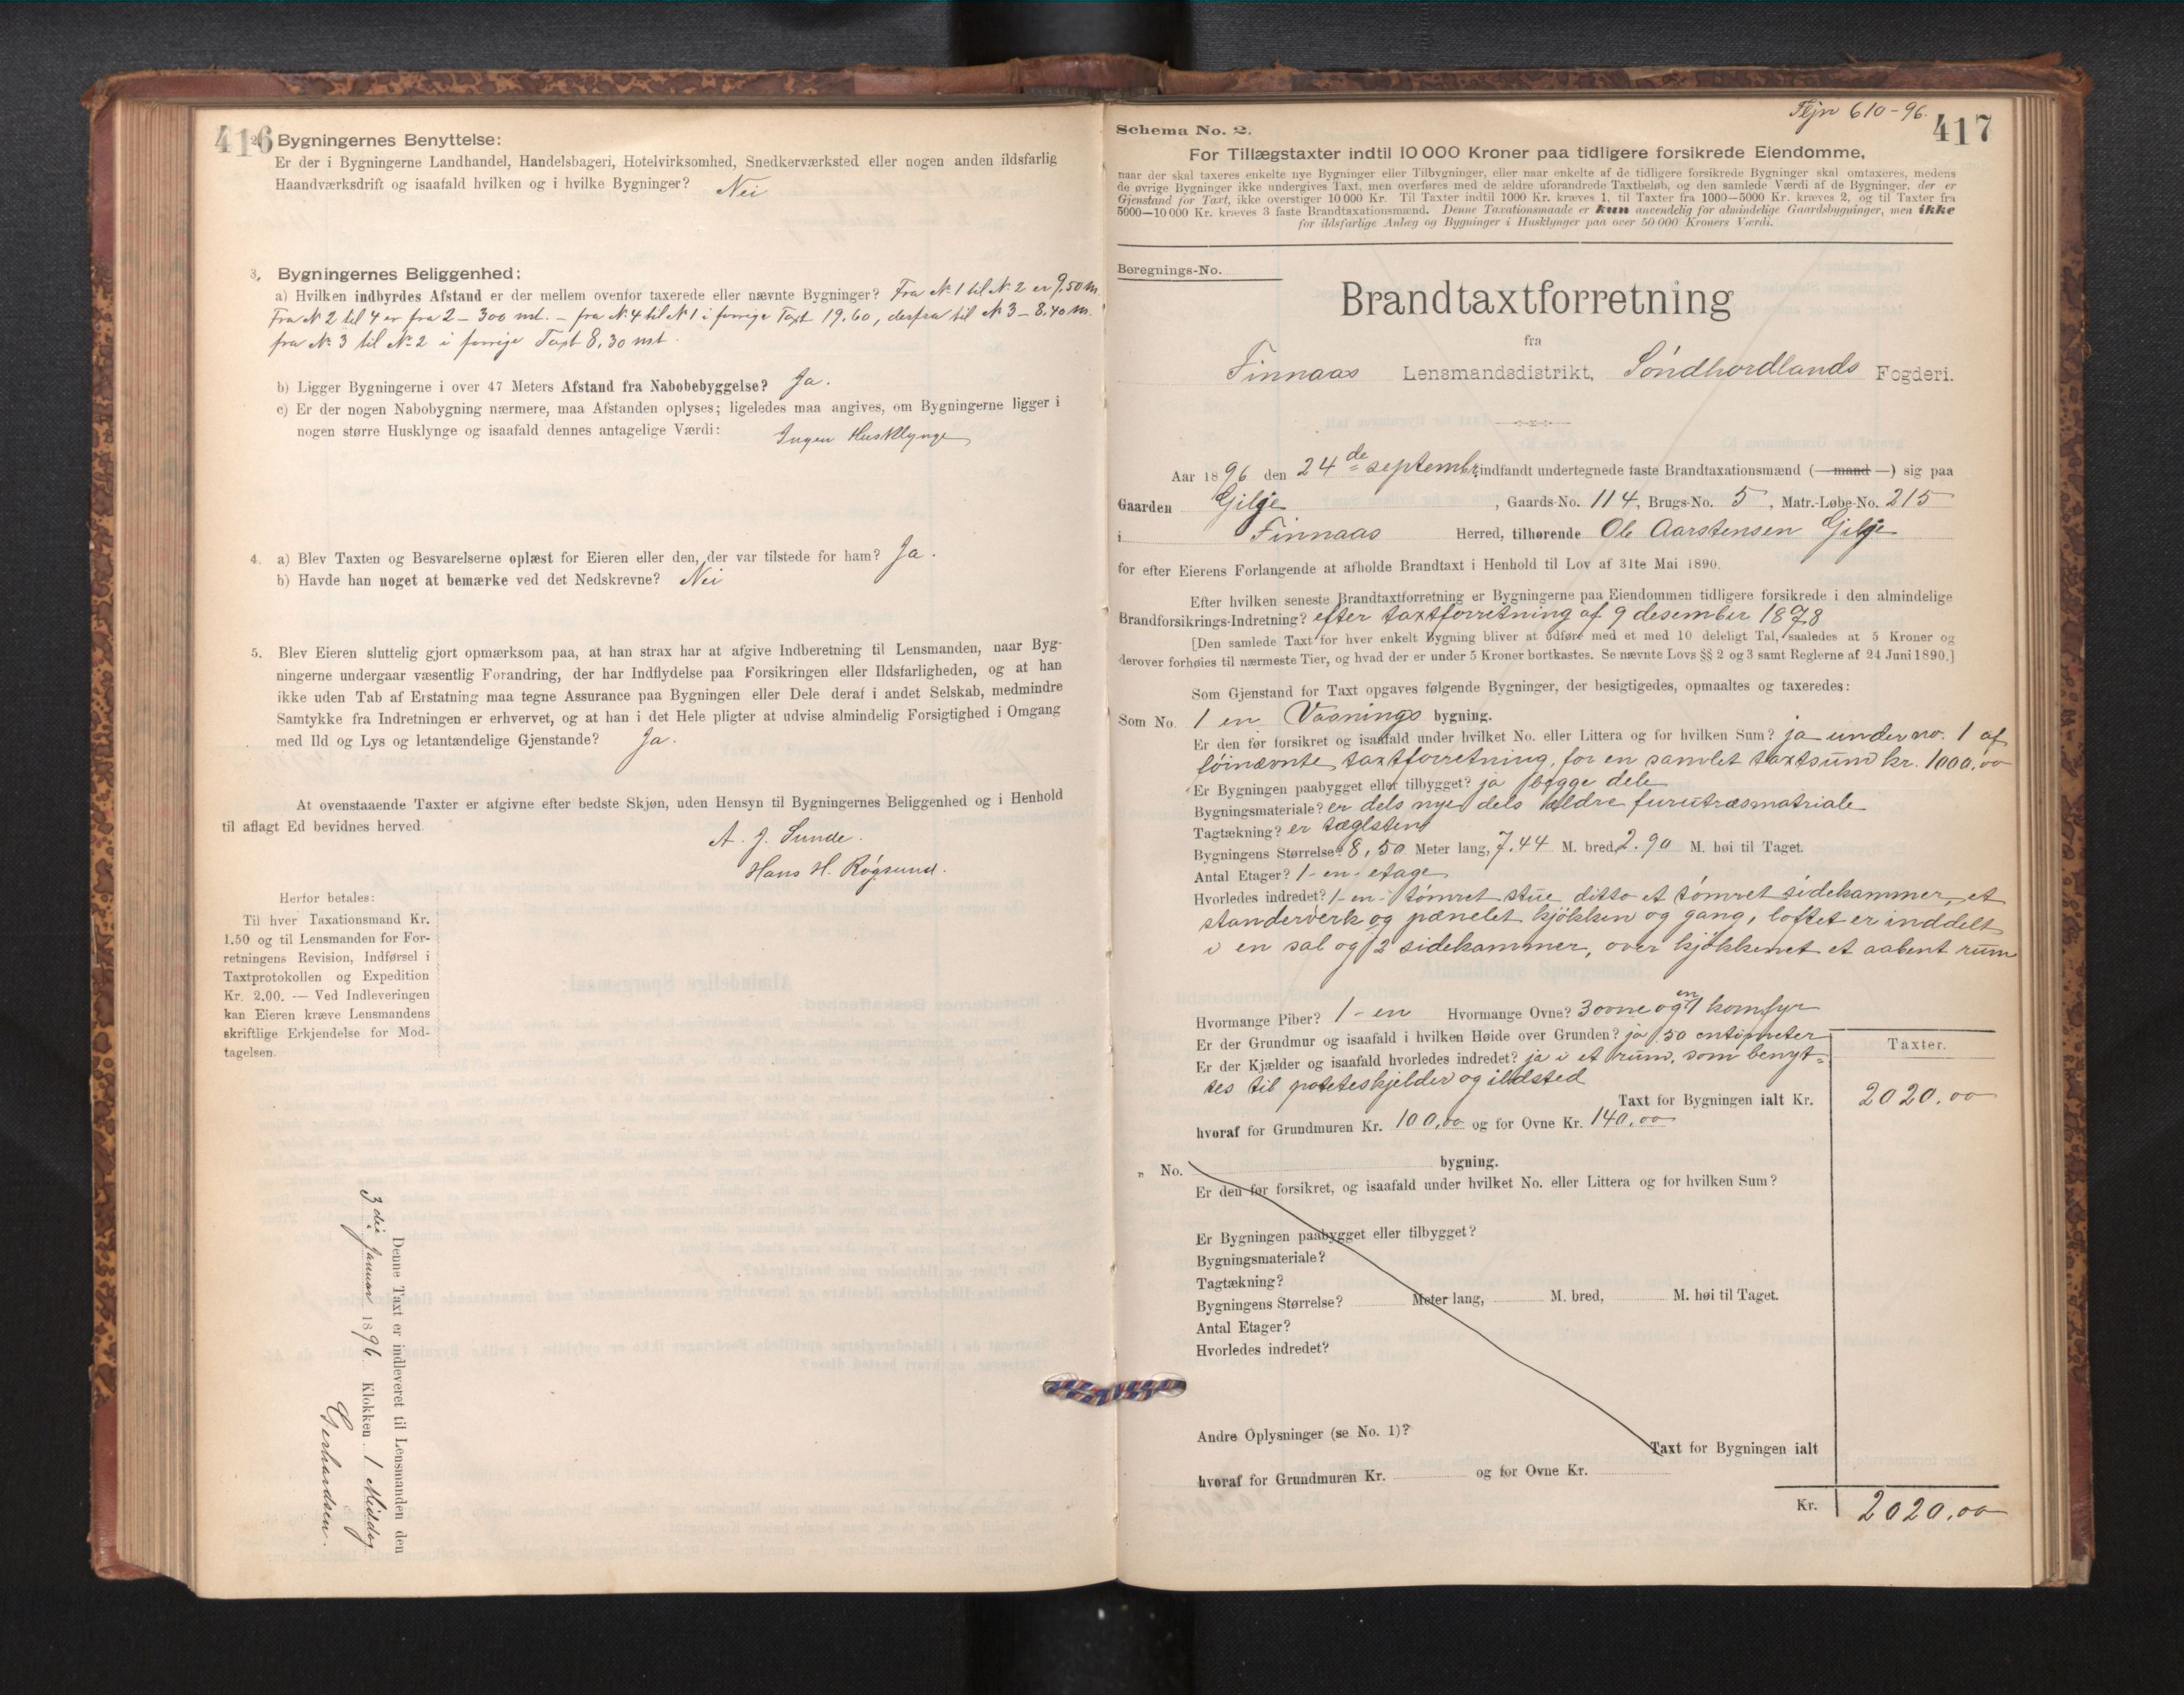 416
2. Bygningernes Benyttelse:
Er der i Bygningerne Landhandel, Handelsbageri, Hotelvirksomhed, Snedkerværksted eller nogen anden ildsfarlig
Haandværksdrift og isaafald hvilken og i hvilke Bygninger? Nei
3. Bygningernes Beliggenhed:
a) Hvilken indbyrdes Afstand er der mellem ovenfor taxerede eller nævnte Bygninger? Fra No 1 til No 2 er 9,50 m.
Fra No 2 til 4 er fra 2 - 300 mt. - fra No 4 til No 1 i forrige Taxt 19,60, derfra til No 3 - 8,40 m.
fra No 3 til No 2 i forrige Taxt 8,30 mt.
b) Ligger Bygningerne i over 47 Meters Afstand fra Nabobebyggelse? Ja.
c) Er der nogen Nabobygning nærmere, maa Afstanden oplyses; ligeledes maa angives, om Bygningerne ligger i
nogen større Husklynge og isaafald dennes antagelige Værdi: Ingen Husklynge
4. a) Blev Taxten og Besvarelserne oplæst for Eieren eller den, der var tilstede for ham? Ja.
b) Havde han noget at bemærke ved det Nedskrevne? Nei
5. Blev Eieren sluttelig gjort opmærksom paa, at han strax har at afgive Indberetning til Lensmanden, naar Byg-
ningerne undergaar væsentlig Forandring, der har Indflydelse paa Forsikringen eller Ildsfarligheden, og at han
ikke uden Tab af Erstatning maa tegne Assurance paa Bygningen eller Dele deraf i andet Selskab, medmindre
Samtykke fra Indretningen er erhvervet, og at han i det Hele pligter at udvise almindelig Forsigtighed i Omgang
med Ild og Lys og letantændelige Gjenstande? Ja.
At ovenstaaende Taxter er afgivne efter bedste Skjøn, uden Hensyn til Bygningernes Beliggenhed og i Henhold
til aflagt Ed bevidnes herved.
A. J. Sunde.
Hans H. Røgsund.
Herfor betales:
Til hver Taxationsmand Kr.
1.50 og til Lensmanden for For-
retningens Revision, Indførsel i
Taxtprotokollen og Expedition
Kr. 2.00. — Ved Indleveringen
kan Eieren kræve Lensmandens
skriftlige Erkjendelse for Mod-
tagelsen.
Denne Taxt er indleveret til Lensmanden den
3die Januar 1896 Klokken 1 Middag
Gerhardsen.
Fljn 610-96.
417
Schema No. 2.
For Tillægstaxter indtil 10 000 Kroner paa tidligere forsikrede Eiendomme,
naar der skal taxeres enkelte nye Bygninger eller Tilbygninger, eller naar enkelte af de tidligere forsikrede Bygninger skal omtaxeres, medens
de øvrige Bygninger ikke undergives Taxt, men overføres med de ældre uforandrede Taxtbeløb, og den samlede Værdi af de Bygninger, der er
Gjenstand for Taxt, ikke overstiger 10 000 Kr. Til Taxter indtil 1000 Kr. kræves 1, til Taxter fra 1000—5000 Kr. kræves 2, og til Taxter fra
5000—10 000 Kr. kræves 3 faste Brandtaxationsmænd. Denne Taxationsmaade er kun anvendelig for almindelige Gaardsbygninger, men ikke
for ildsfarlige Anlæg og Bygninger i Husklynger paa over 50 000 Kroners Værdi.
Beregnings-No.
Brandtaxtforretning
fra
Finnaas Lensmandsdistrikt, Søndhordlands Fogderi.
Aar 1896 den 24de septembr. indfandt undertegnede faste Brandtaxationsmænd (— mand —) sig paa
Gaarden Gilje, Gaards-No. 114, Brugs-No. 5, Matr.-Løbe-No. 215
i Finnaas Herred, tilhørende Ole Aarstensen Gilje
for efter Eierens Forlangende at afholde Brandtaxt i Henhold til Lov af 31te Mai 1890.
Efter hvilken seneste Brandtaxtforretning er Bygningerne paa Eiendommen tidligere forsikrede i den almindelige
Brandforsikrings-Indretning? efter taxtforretning af 9 desember 1878
[Den samlede Taxt for hver enkelt Bygning bliver at udføre med et med 10 deleligt Tal, saaledes at 5 Kroner og
derover forhøies til nærmeste Tier, og hvad der er under 5 Kroner bortkastes. Se nævnte Lovs §§ 2 og 3 samt Reglerne af 24 Juni 1890.]
Som Gjenstand for Taxt opgaves følgende Bygninger, der besigtigedes, opmaaltes og taxeredes:
Som No. 1 en Vaanings bygning.
Er den før forsikret og isaafald under hvilket No. eller Littera og for hvilken Sum? ja under no. 1 af
føinævnte taxtforretning, for en samlet taxtsum kr. 1000,00
Er Bygningen paabygget eller tilbygget? ja begge dele
Bygningsmateriale? er dels nye dels ældre furutræsmatriale
Tagtækning? er tæglsten
Bygningens Størrelse? 8,50 Meter lang, 7,44 M. bred, 2,90 M. høi til Taget.
Antal Etager? 1 - en - etage
Hvorledes indredet? 1 - en - tømret stue ditto et tømret sidekammer, et
standerverk og pænelet kjøkken og gang, loftet er inddelt
i en sal og 2 sidekammer, over kjøkkenet et aabent rum
Hvormange Piber? 1 - en Hvormange Ovne? 3 ovne og en 1 komfyr
Er der Grundmur og isaafald i hvilken Høide over Grunden? ja 50 centimeter
Er der Kjælder og isaafald hvorledes indredet? ja i et rum, som benyt-
tes til poteteskjelder og ildsted
Taxter.
Taxt for Bygningen ialt Kr. 2020,00
hvoraf for Grundmuren Kr. 100,00 og for Ovne Kr. 140,00
„ No. bygning.
Er den før forsikret, og isaafald under hvilket No. eller Littera og for hvilken Sum?
Er Bygningen paabygget eller tilbygget?
Bygningsmateriale?
Tagtækning?
Bygningens Størrelse? Meter lang, M. bred, M. høi til Taget.
Antal Etager?
Hvorledes indredet?
Andre Oplysninger (se No. 1)?
Taxt for Bygningen ialt
hvoraf for Grundmuren Kr. og for Ovne Kr.
Kr. 2020,00